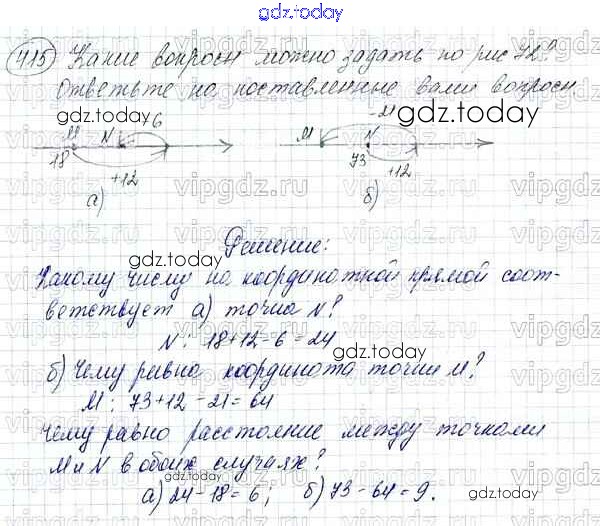 gdz.today
415 Какие вопросы можно задать по рис 72?
Ответьте на поставленные вами вопросы
gdz.today
-6
-21
gdz.today
M N
M N
18
+12
73
+12
а)
б)
Решение:
gdz.today
Какому числу на координатной прямой соот-
ветствует а) точка N?
N: 18+12-6=24
gdz.today
б) Чему равна координата точки M?
M: 73+12-21=64
Чему равно расстояние между точками
M и N в обоих случаях?
а) 24-18=6; б) 73-64=9.
gdz.today
gdz.today
vipgdz.ru